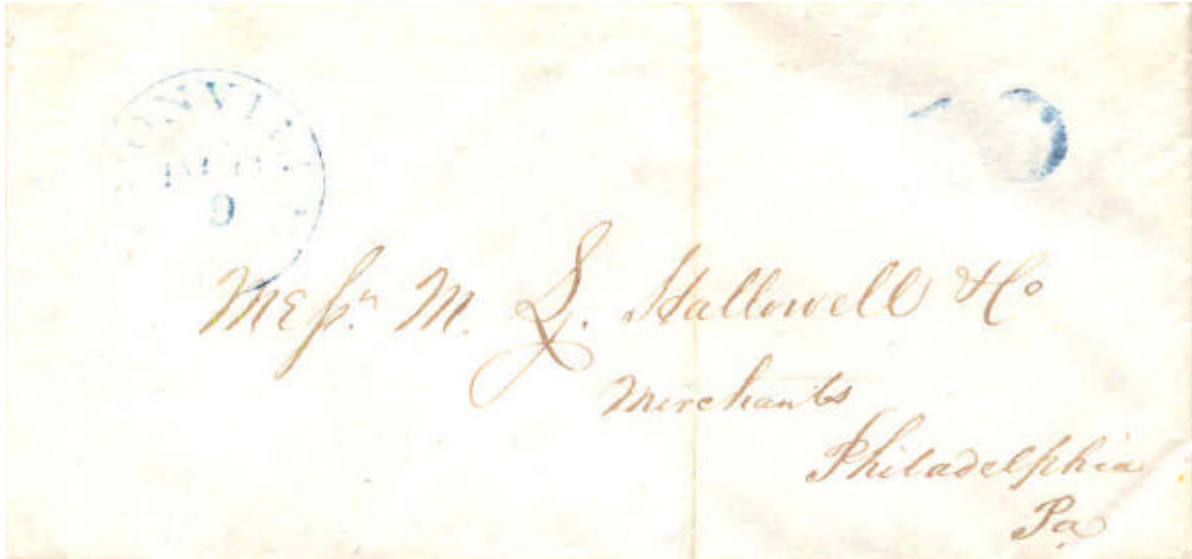 9
Messrs. M. L. Hallowell & Co
Merchants
Philadelphia
Pa